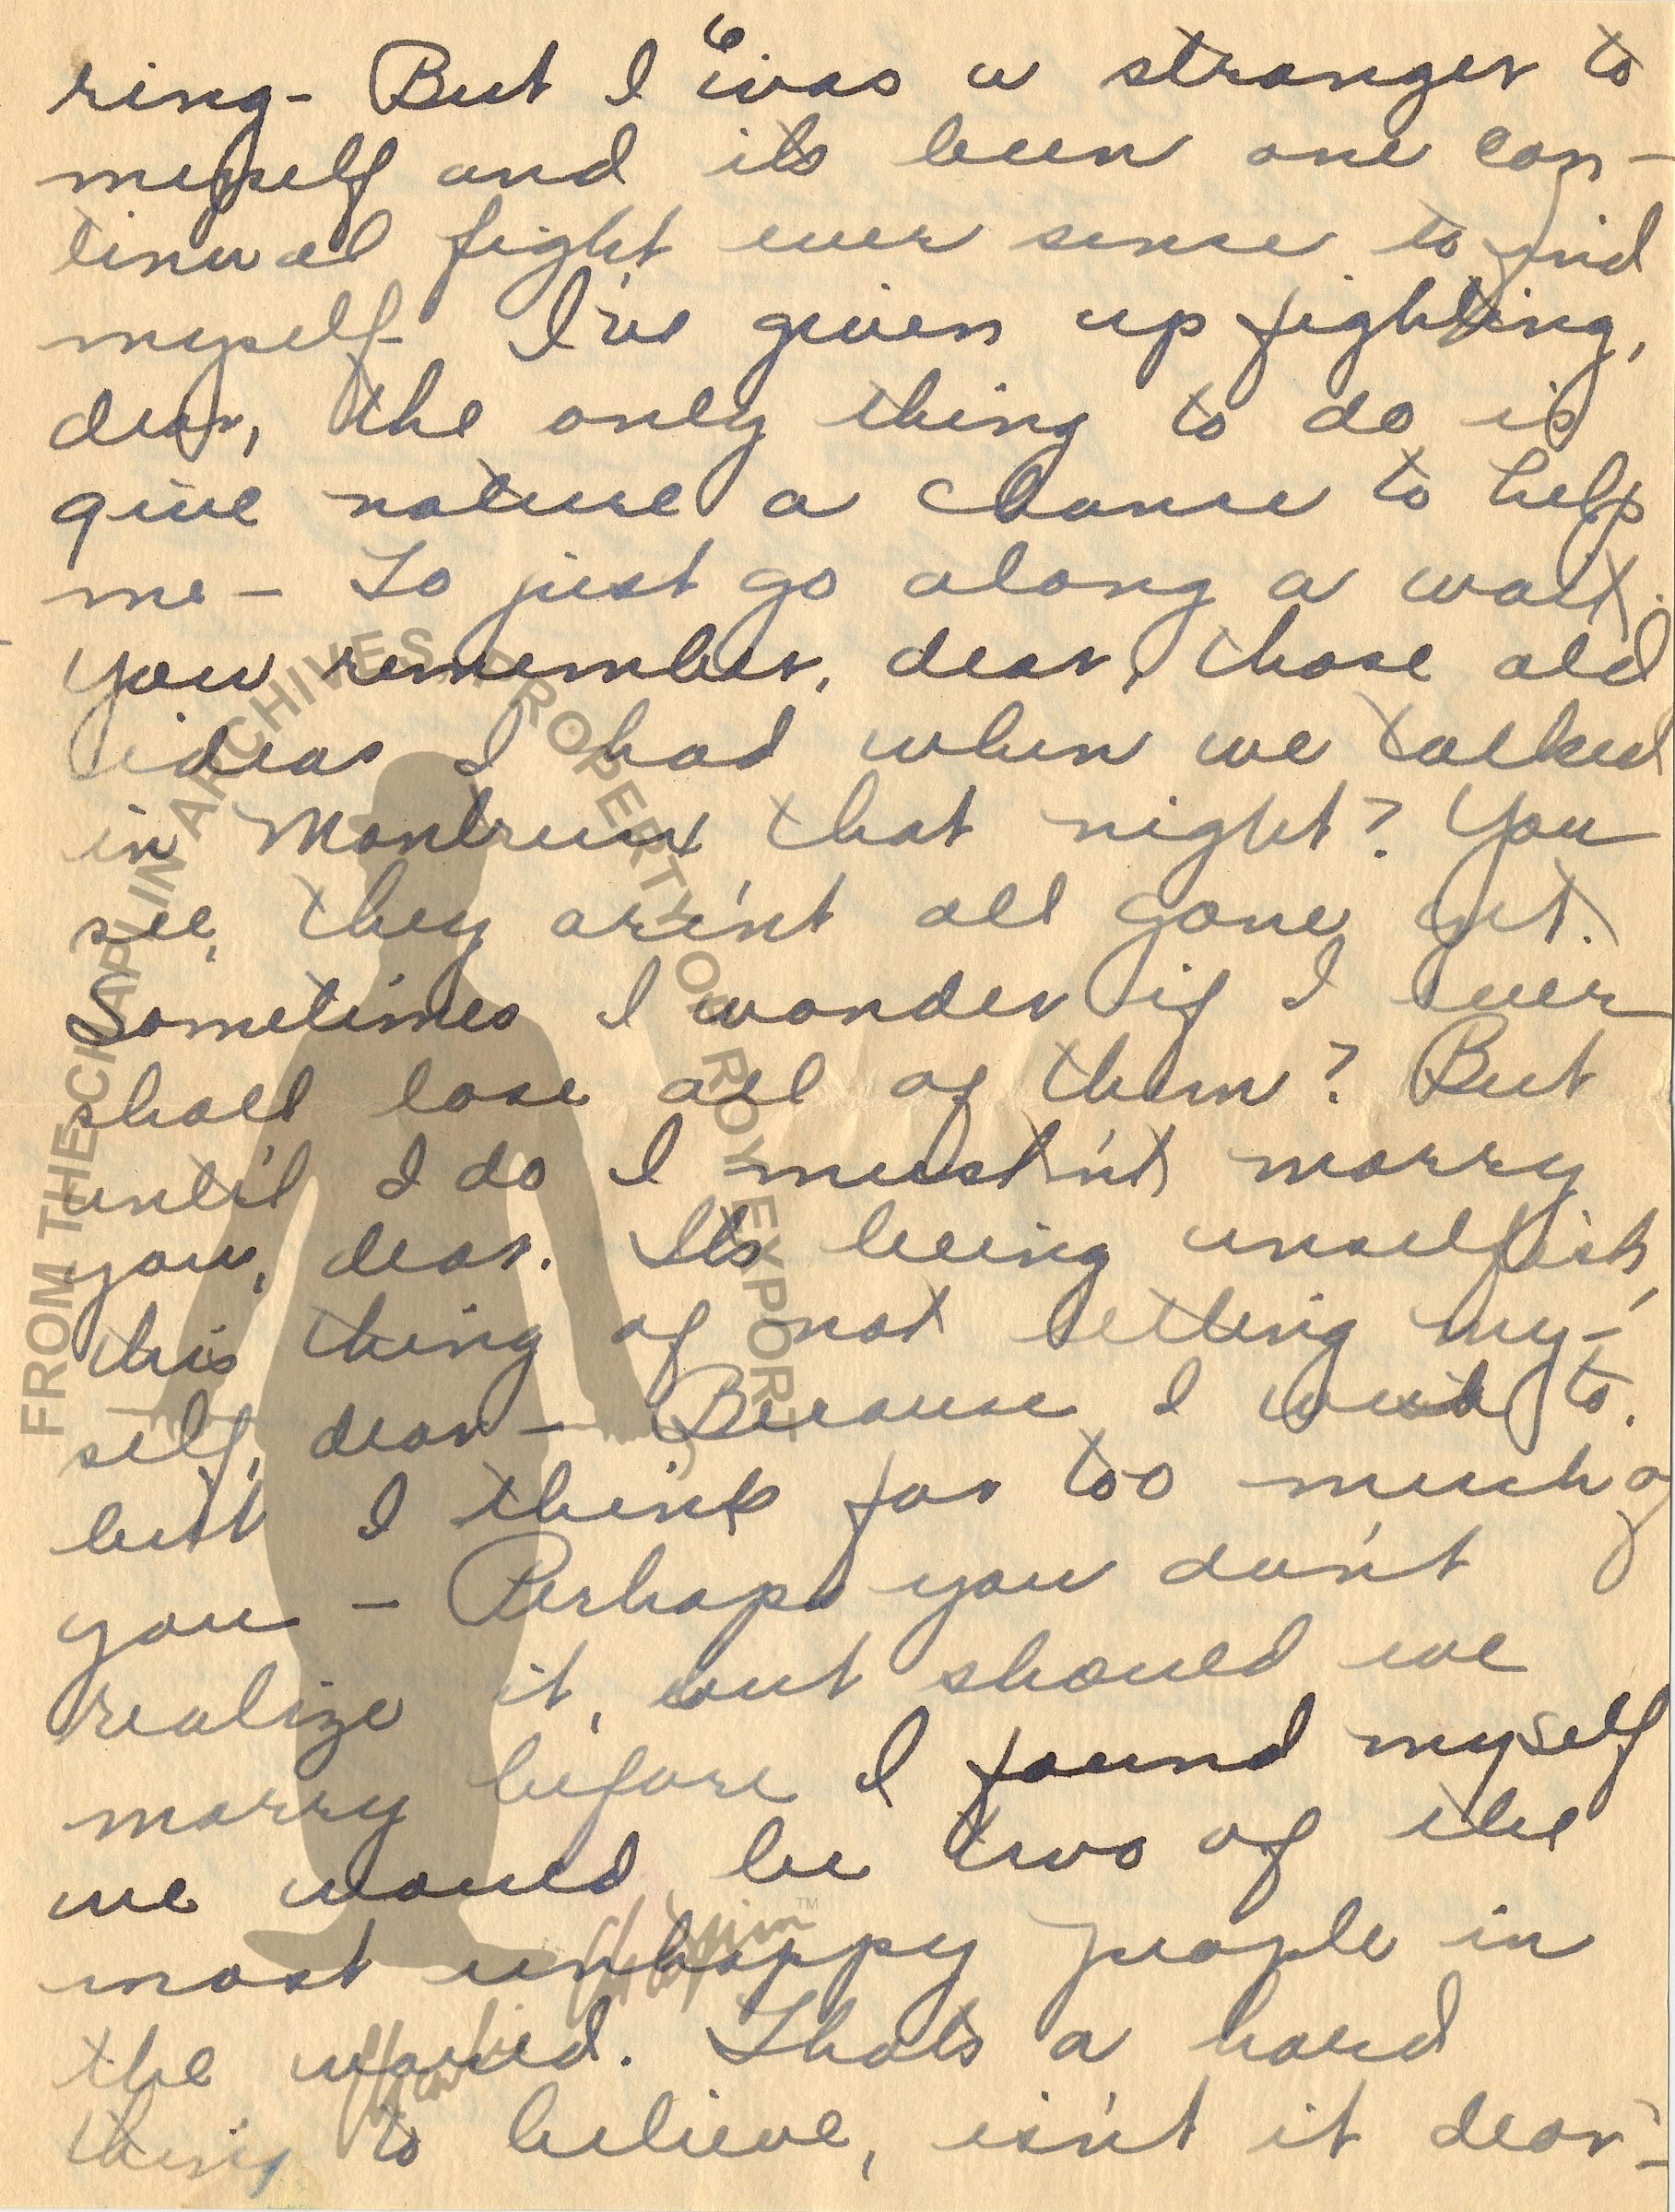 6
ring - But I was a stranger to
myself and its been one con-
tinual fight ever sence to find
myself - I've given up fighting,
dear, the only thing to do is
give nature a chance to help
me - To just go along a wait.
You remember, dear, those old
ideas I had when we talked
in Montreux that night? You
see, they are'nt all gone yet.
Sometimes I wonder if I ever
shall lose all of them? But
until I do I must'nt marry
you, dear. Its being unselfish,
this thing of not letting my-
self, dear - Because I want to.
but I think far too much of
you - Perhaps you don't
realize it, but should we
marry before I found myself
we would be two of the
most unhappy people in
the world. Thats a hard
thing to believe, isn't it dear -
FROM THE CHAPLIN ARCHIVES PROPERTY OF ROY EXPORT
Charlie Chaplin™